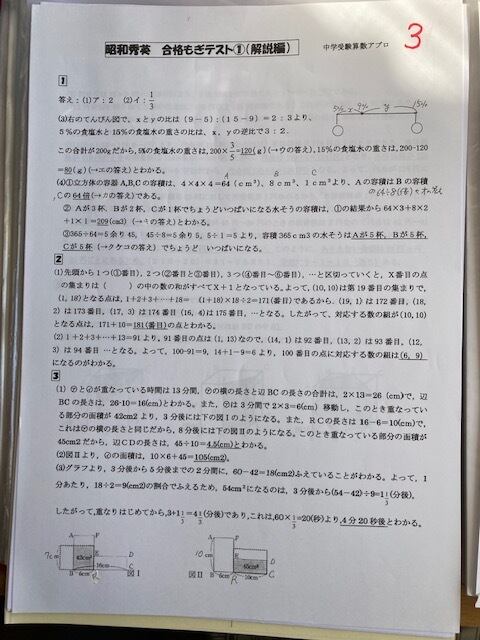 昭和秀英 合格もぎテスト①(解説編)
中学受験算数アプロ
3
1
答え:(1)ア:2 (2)イ:1/3
(3)右のてんびん図で、xとyの比は(9-5):(15-9)=2:3より、
5%の食塩水と15%の食塩水の重さの比は、x、yの逆比で3:2.
5% x 9% y 15%
この合計が200gだから、5%の食塩水の重さは、200×3/5=120(g)(→ウの答え)、15%の食塩水の重さは、200-120
=80(g)(→エの答え)とわかる。
A B C
(4)①立方体の容器A,B,Cの容積は、4×4×4=64(cm³)、8cm³、1cm³より、Aの容積はBの容積
、Cの64倍(→カの答え)である。
の64÷8=8(倍)→オの答え
② Aが3杯、Bが2杯、Cが1杯でちょうどいっぱいになる水そうの容積は、①の結果から64×3+8×2
+1×1=209(cm3)(→ミの答え)とわかる。
③365÷64=5余り45、45÷8=5余り5、5÷1=5より、容積365cm3の水そうはAが5杯、Bが5杯、
Cが5杯(→クケコの答え)でちょうど いっぱいになる。
2
(1)先頭から1つ(①番目)、2つ(②番目と③番目)、3つ(④番目~⑥番目)、…と区切っていくと、X番目の点
の集まりは( )の中の数の和がすべてX+1となっている。よって、(10,10)は第19番目の集まりで、
(1,18)となる点は、1+2+3+…+18= (1+18)×18÷2=171(番目)であるから、(19,1)は172番目、(18,
2)は173番目、(17,3)は174番目(16,4)は175番目、…となる。したがって、対応する数の組が(10,10)
となる点は、171+10=181(番目)の点とわかる。
(2)1+2+3+…+13=91より、91番目の点は(1,13)なので、(14,1)は92番目、(13,2)は93番目、(12,
3)は94番目…となる。よって、100-91=9、14+1-9=6より、100番目の点に対応する数の組は(6,9)
になるのがわかる。
3
(1) ㋐と㋑が重なっている時間は13分間、㋐の横の長さと辺BCの長さの合計は、2×13=26(cm)で、辺
BCの長さは、26-10=16(cm)とわかる。また、㋐は3分間で2×3=6(cm)移動し、このとき重なってい
る部分の面積が42cm2より、3分後には下の図Ⅰのようになる。また、RCの長さは16-6=10(cm)で、
これは㋐の横の長さと同じだから、8分後には下の図Ⅱのようになる。このとき重なっている部分の面積が
45cm2だから、辺CDの長さは、45÷10=4.5(cm)とわかる。
(2)図Ⅱより、㋑の面積は、10×6+45=105(cm2)。
(3)グラフより、3分後から5分後までの2分間に、60-42=18(cm2)ふえていることがわかる。よって、1
分あたり、18÷2=9(cm2)の割合でふえるため、54cm²になるのは、3分後から(54-42)÷9=1 1/3(分後)。
したがって、重なりはじめてから、3+1 1/3=4 1/3(分後)であり、これは、60×1/3=20(秒)より、4分20秒後とわかる。
A F
7cm 42cm² E D
16cm
B 6cm R C 図Ⅰ
A F
10cm E D
45cm²
図Ⅱ B 6cm R 10cm C